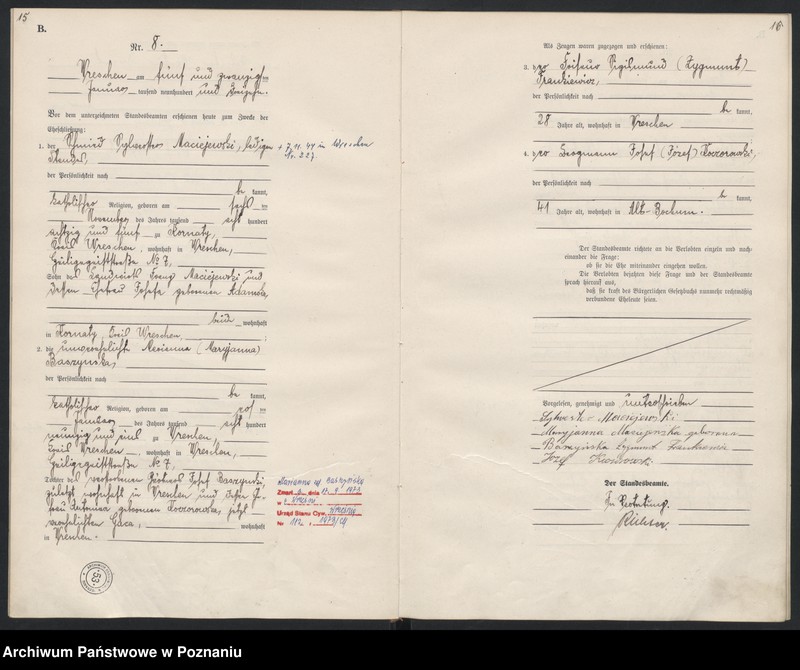 15
B.
Nr. 8.
Wreschen am fünf und zwanzigsten
Januar tausend neunhundert und
Vor dem unterzeichneten Standesbeamten erschienen heute zum Zwecke der
Eheschließung:
1. der Schmied Sylvester Maciejewski, ledigen
Standes,
der Persönlichkeit nach
be kannt,
katholischer Religion, geboren am sechsten
November des Jahres tausend acht hundert
achtzig und fünf zu Gornaty,
Kreis Wreschen, wohnhaft in Wreschen,
Heiligegeiststraße № 7,
Sohn des Landwirts Franz Maciejewski und
dessen Ehefrau Josefa geborenen Adamska,
beide wohnhaft
in Gornaty, Kreis Wreschen;
2. die unverehelicht Marianna (Maryjanna)
Baszynska,
der Persönlichkeit nach
be kannt,
katholischer Religion, geboren am
Januar des Jahres tausend acht hundert
neunzig und eins zu Wreschen,
Kreis Wreschen, wohnhaft in Wreschen,
Heiligegeiststraße № 7,
Tochter des verstorbenen Josef Baszynski,
zuletzt wohnhaft in Wreschen und dessen
Antonina geborenen jetzt
verehelichten wohnhaft
in Wreschen.
+ 7.11.44 in Wreschen
Nr. 227.
Marianna
Zmarł dnia
w
Urząd Stanu Cyw.
Nr 112
53
16
Als Zeugen waren zugezogen und erschienen:
3. der Friseur Sigismund (Zygmunt)
Frankiewicz,
der Persönlichkeit nach
be kannt,
28 Jahre alt, wohnhaft in Wreschen
4. der Bergmann Josef (Józef)
der Persönlichkeit nach
be kannt,
41 Jahre alt, wohnhaft in Alt-Bochum.
Der Standesbeamte richtete an die Verlobten einzeln und nach-
einander die Frage:
ob sie die Ehe miteinander eingehen wollen.
Die Verlobten bejahten diese Frage und der Standesbeamte
sprach hierauf aus,
daß sie kraft des Bürgerlichen Gesetzbuchs nunmehr rechtmäßig
verbundene Eheleute seien.
Vorgelesen, genehmigt und unterschrieben
Sylwester Maciejewski
Maryjanna Maciejewska geborene
Baszyńska Zygmunt Frankiewicz
Józef
Der Standesbeamte.
In Vertretung.
Richter.
Archiwum Państwowe w Poznaniu